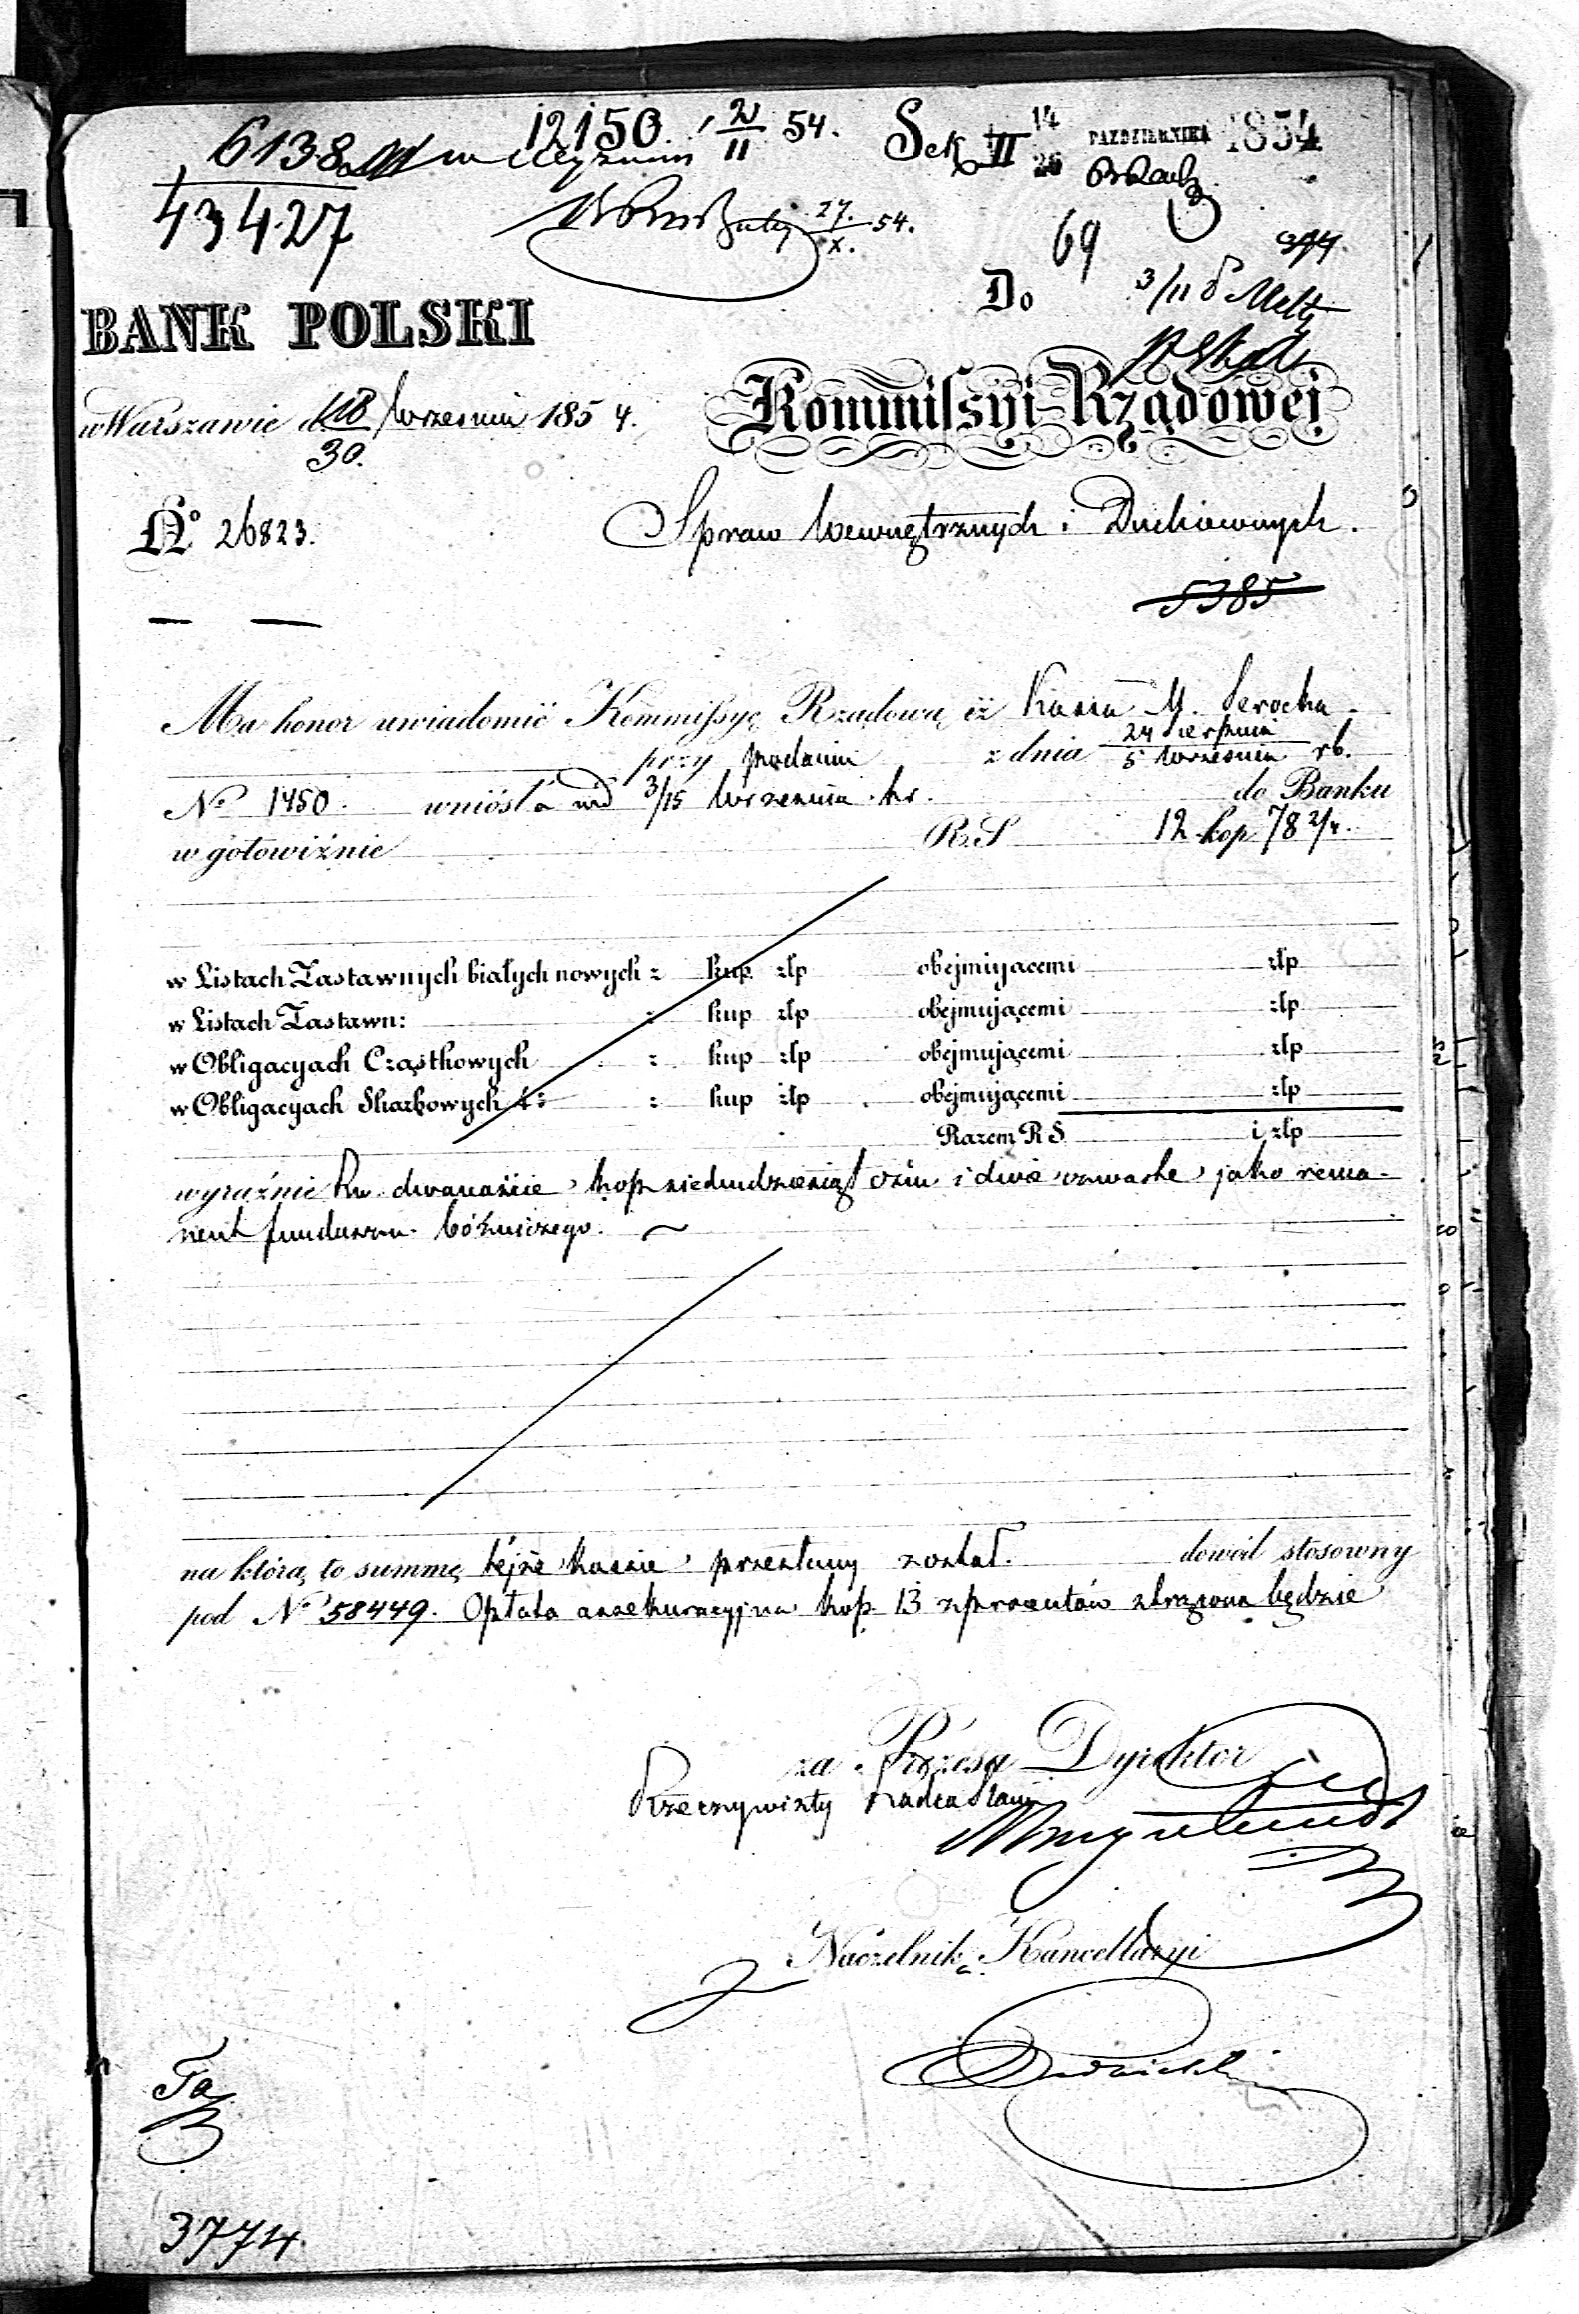 6138 12150. 2/11 54. Sek II 14/26 PAZDZIERNIKA 1854
43427 27/X. 54. 69
Do 3/11
BANK POLSKI
Kommissyi Rządowej
w Warszawie d 18/30. Wrzesnia 1854.
Nº 26823. Spraw Wewnętrznych i Duchownych.
5385
Ma honor uwiadomić Kommissyę Rządową, iż Kassa M. Serocka
przy podaniu z dnia 24 Sierpnia / 5 Wrzesnia rb.
Nº 1450. wniosła nd 3/15 Wrzesnia hr. do Banku
w gotowiźnie R.S 12 kop 78 2/4.
w Listach Zastawnych białych nowych z kup złp obejmiyacemi złp
w Listach Zastawn: z kup złp obejmującemi złp
w Obligacyach Cząstkowych z kup złp obejmującemi złp
w Obligacyach Skarbowych z kup złp obejmującemi złp
Razem R S i złp
wyraźnie Rs. dwanaście kop siedmdziesiąt ośm i dwie czwarte, jako rema-
nent funduszu bóżniczego.
na którą to summę tejże kassie przesłany został. dowód stosowny
pod Nº 58449. Opłata assekuracyjna kop. 13 z procentów strącona będzie
za Prezesa Dyrektor
Rzeczywisty Radca Stanu
Naczelnik Kancellaryi
3774.